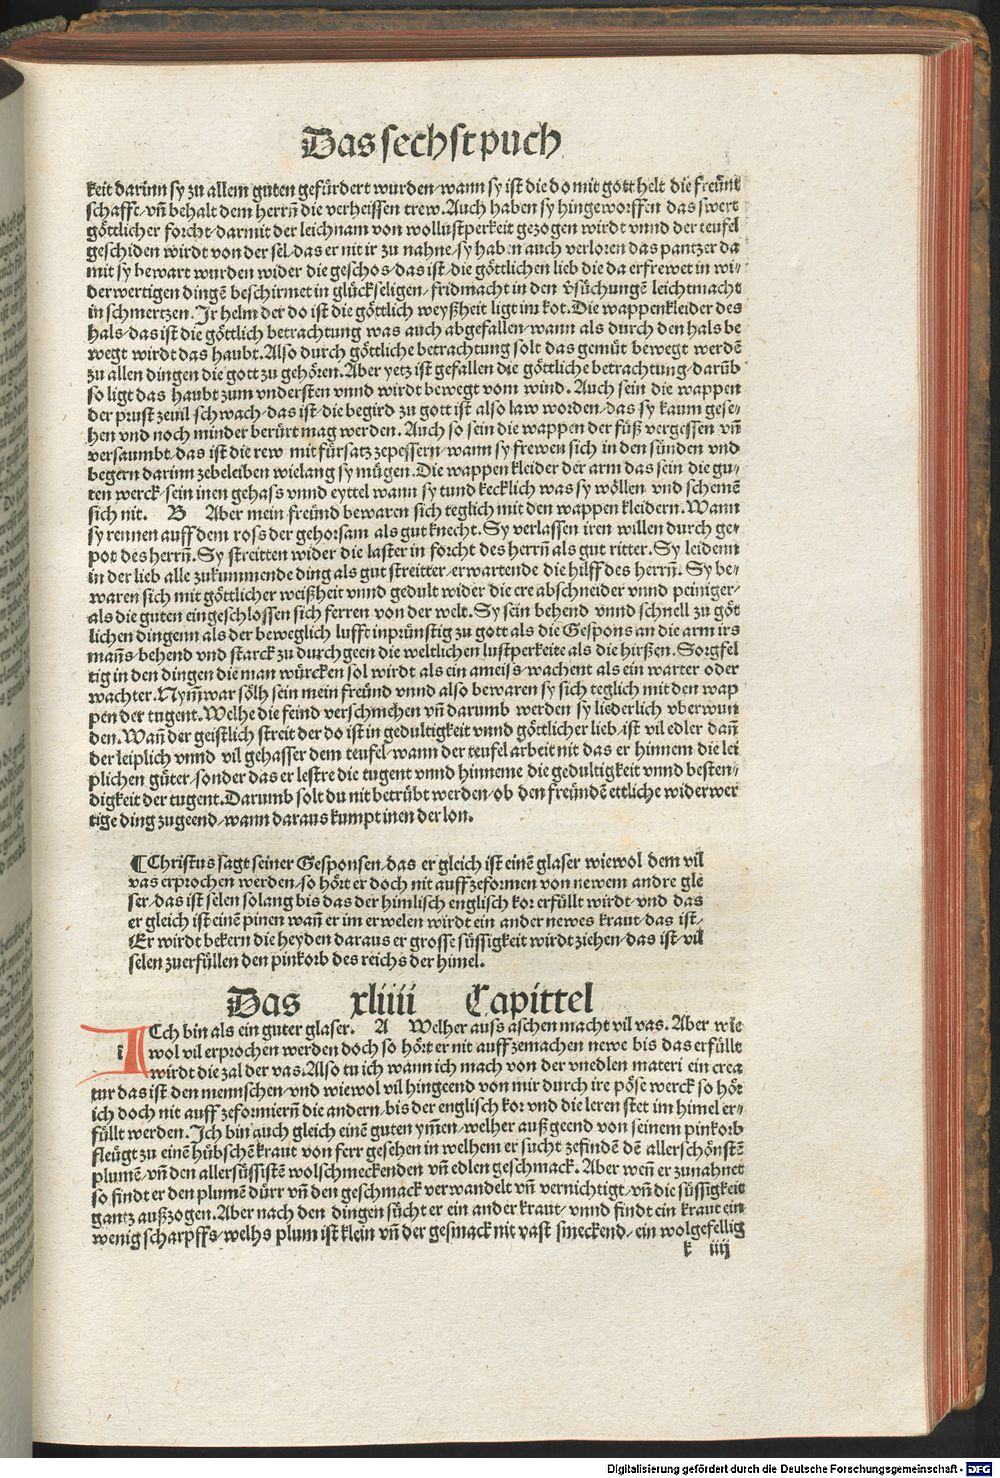 Das sechst puch
keit darinn sy zu allem guten gefürdert wurden/wann sy ist die do mit gott helt die freünt
schafft/vñ behalt dem herrñ die verheissen trew. Auch haben sy hingeworffen das swert
göttlicher forcht/darmit der leichnam von wollustperkeit gezogen wirdt vnnd der teufel
geschiden wirdt von der sel/das er nit ir zu nahne/sy haben auch verloren das pantzer da
mit sy bewart wurden wider die geschos/das ist/die göttlichen lieb die da erfrewet in wi/
derwertigen dingē beschirmet in glückseligen/fridmacht in den v̈sůchungē leichtmacht
in schmertzen. Ir helm der do ist die göttlich weyßheit ligt im kot. Die wappenkleider des
hals/das ist die göttlich betrachtung was auch abgefallen/wann als durch den hals be
wegt wirdt das haubt. Also durch göttliche betrachtung solt das gemüt bewegt werdē
zu allen dingen die gott zu gehören. Aber yetz ist gefallen die göttliche betrachtung/darūb
so ligt das haubt zum vndersten vnnd wirdt bewegt vom wind. Auch sein die wappen
der prust zeuil schwach/das ist/die begird zu gott ist also law worden/das sy kaum gese/
hen vnd noch minder berürt mag werden. Auch so sein die wappen der füß vergessen vñ
versaumbt/das ist die rew mit fürsatz zepessern/wann sy frewen sich in den sünden vnd
begern darinn zebeleiben wielang sy mügen. Die wappenkleider der arm das sein die gu/
ten werck/sein inen gehass vnnd eyttel wann sy tund kecklich was sy wöllen/vnd schemē
sich nit. B Aber mein freünd bewaren sich teglich mit den wappen kleidern. Wann
sy rennen auff dem ross der gehorsam als gut knecht. Sy verlassen iren willen durch ge/
pot des herrñ. Sy streitten wider die laster in forcht des herrñ als gut ritter. Sy leidenn
in der lieb alle zukummende ding als gut streitter/erwartende die hilff des herrñ. Sy be/
waren sich mit göttlicher weißheit vnnd gedult wider die ere abschneider vnnd peiniger/
als die guten eingeschlossen sich ferren von der welt. Sy sein behend vnnd schnell zu göt
lichen dingenn als der beweglich lufft inprünstig zu gott als die Gespons an die arm irs
mañs/behend vnd starck zu durchgeen die weltlichen lustperkeite als die hirßen. Sorgfel
tig in den dingen die man würcken sol wirdt als ein ameiss/wachent als ein warter oder
wachter. Nym̄ war sölh sein mein freünd vnnd also bewaren sy sich teglich mit den wap
pen der tugent. Welhe die feind verschmehen vñ darumb werden sy liederlich vberwun
den. Wañ der geistlich streit der do ist in gedultigkeit vnnd göttlicher lieb/ist vil edler dañ
der leiplich vnnd vil gehasser dem teufel/wann der teufel arbeit nit das er hinnem die lei
plichen güter/sonder das er lestre die tugent vnnd hinneme die gedultigkeit vnnd besten/
digkeit der tugent. Darumb solt du nit betrübt werden/ob den freündē ettliche widerwer
tige ding zugeend/wann daraus kumpt inen der lon.
¶ Christus sagt seiner Gesponsen/das er gleich ist einē glaser wiewol dem vil
vas erprochen werden/so hört er doch nit auff zeformen von newem andre gle
ser/das ist selen solang bis das der himlisch englisch kor erfüllt wirdt/vnd das
er gleich ist einē pinen wañ er im erwelen wirdt ein ander newes kraut/das ist/
Er wirdt bekern die heyden daraus er grosse süssigkeit wirdt ziehen/das ist/vil
selen zuerfüllen den pinkorb des reichs der himel.
Das xliiii Capittel
ICch bin als ein guter glaser. A Welher auss aschen macht vil vas. Aber wie
i wol vil erprochen werden doch so hört er nit auff zemachen newe bis das erfüllt
wirdt die zal der vas. Also tu ich wann ich mach von der vnedlen materi ein crea
tur das ist den mennschen/vnd wiewol vil hingeend von mir durch ire pöse werck so hör
ich doch nit auff zeformierñ die andern/bis der englisch kor vnd die leren stet im himel er/
füllt werden. Ich bin auch gleich einē guten ym̄en/welher auß geend von seinem pinkorb
fleügt zu einē hübschē kraut von ferr gesehen in welhem er sucht zefindē dē allerschönstē
plumē/vñ den allersüssistē wolschmeckenden vñ edlen geschmack. Aber weñ er zunahnet
so findt er den plumē dürr vñ den geschmack verwandelt vñ vernichtigt/vñ die süssigkeit
gantz außzogen. Aber nach den dingen sücht er ein ander kraut/vnnd findt ein kraut ein
wenig scharpffs/welhs plum ist klein vñ der gesmack nit vast smeckend/ein wolgefellig
k iiij
Digitalisierung gefördert durch die Deutsche Forschungsgemeinschaft - DFG